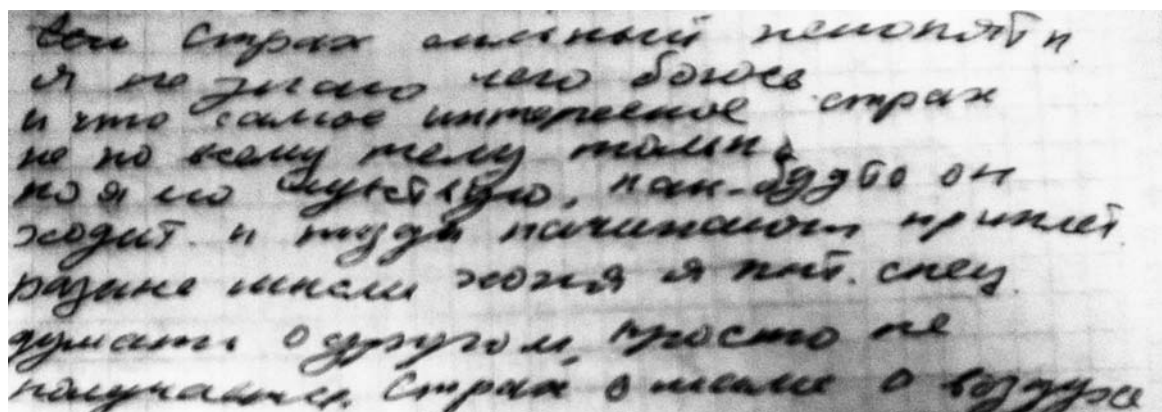 страх сильный непонятн
я не знаю чего боюсь
и что самое интересное страх
не по всему телу
но я его чувствую, как-будто он
ходит. и туда начинают
разные мысли хотя я пыт. спец.
думать о другом, просто не
получается. Страх о мысле о воздухе